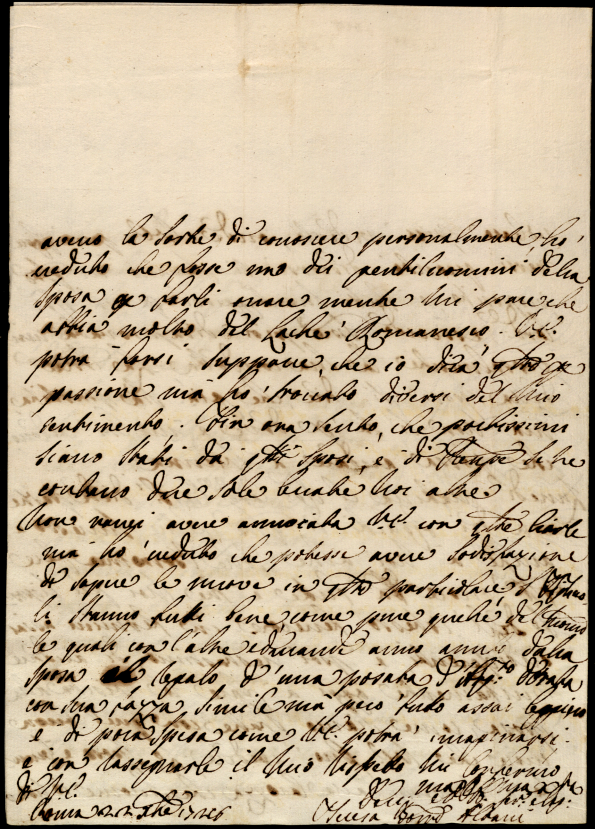 avevo la sorte di conoscere personalmente ho
veduto che fosse uno dei gentiluomini della
sposa e parli mi pare che
abbia molto del Lachè Romanesco. V.E.
potrà farsi suppone, che io dica qto
passione mà hò trovato diversi del mio
sentimento. sin ora sento, che pochissimi
siano stati dà qti sposi, e di se ne
contano due sole
Non vorrei avere annoiata V.E. con qte ciarle
mà hò veduto che potesse avere sodisfazione
di sapere le nuove in qto particolare,
li stanno tutti bene come pure quelle del
le quali con l'altre educande anno avuto dalla
sposa il regalo d'una posata d'Argto dorata
con sua tazza simile mà però tutto assai leggiero
e di poca spesa come V.E. potrà imaginarsi.
e con rassegnarle il mio rispetto mi confermo
di V.E.
Roma 22 1726
Teresa Albani